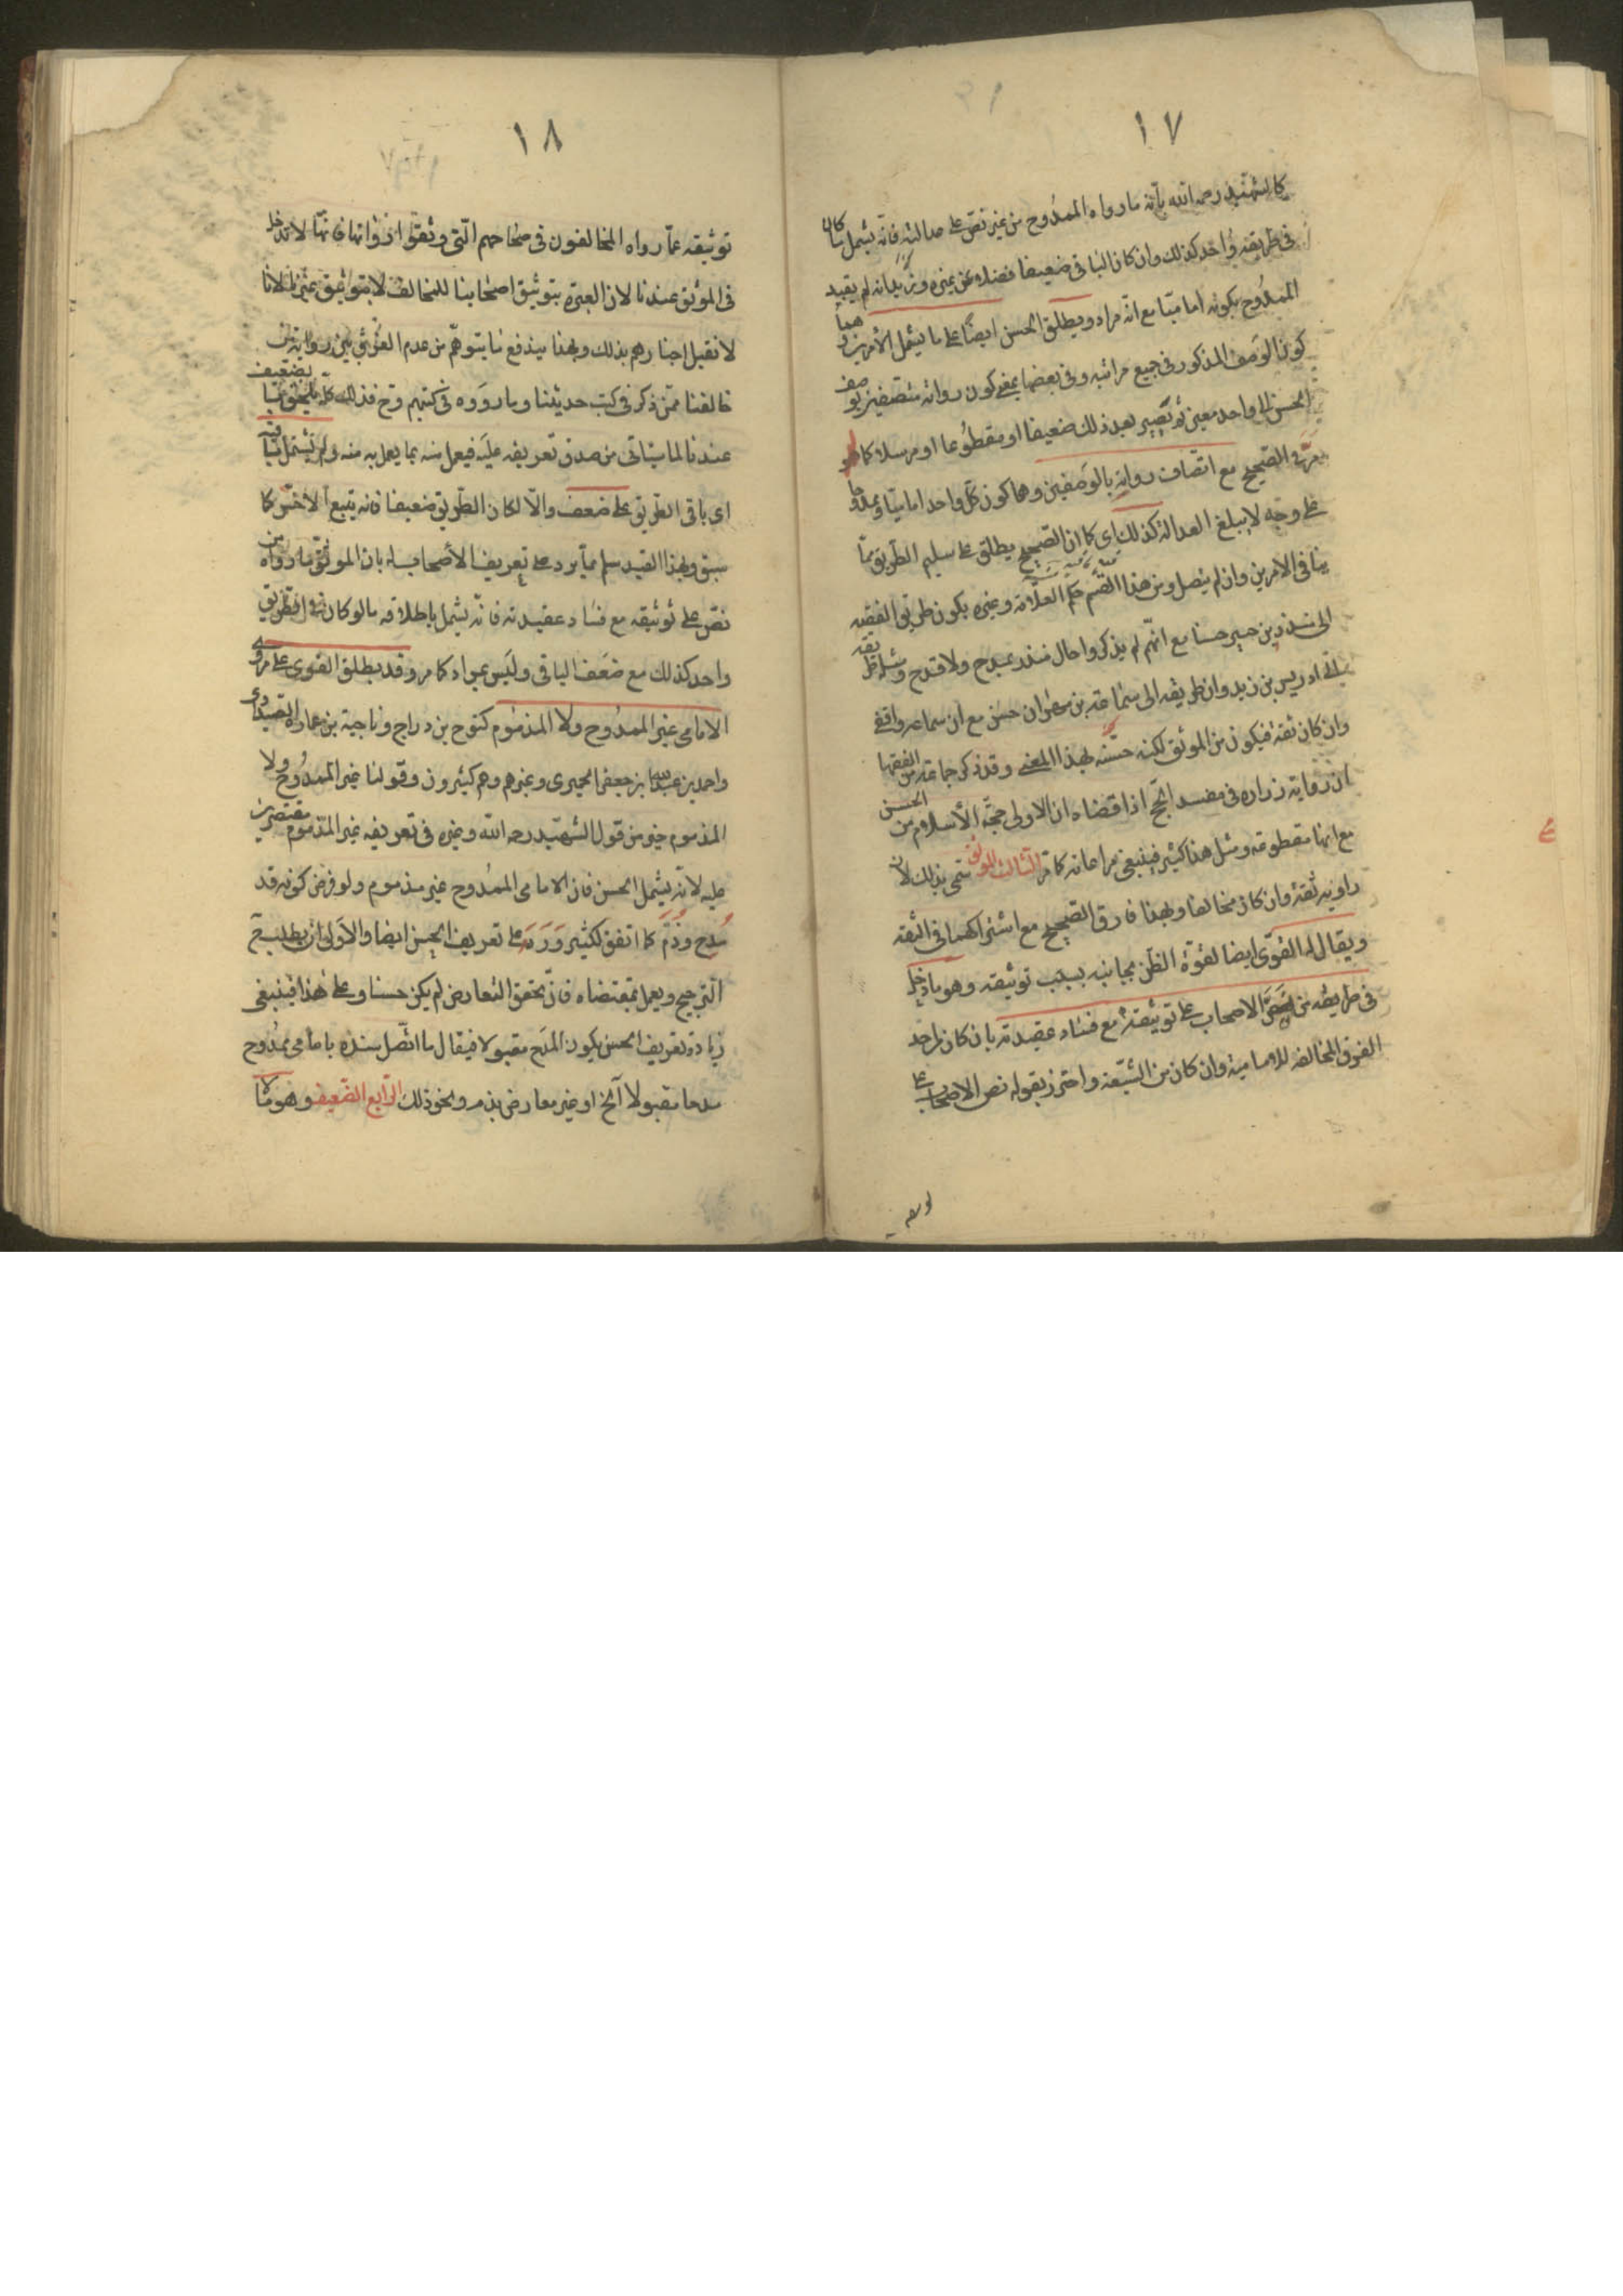 ١٧
كالشهيد رحمه الله بأنه ما رواه الممدوح من غير نص على عدالته فانه يشمل ما كان
في طريقه واحد كذلك وان كان الباقي ضعيفا فضلا عن غيره ويزيد انه لم يقيد
الممدوح بكونه اماميا مع انه مراد ويطلق الحسن ايضا على ما يشمل الأمرين وهما
كون الوصف المذكور في جميع مراتبه وفي بعضها بمعنى كون رواته متصفين بوصف
الحسن الى واحد معين ثم يصير بعد ذلك ضعيفا او مقطوعا او مرسلا كما
مر في الصحيح مع اتصاف رواته بالوصفين وهما كون كل واحد اماميا وممدوحا
على وجه لا يبلغ العدالة كذلك اي كما ان الصحيح يطلق على سليم الطريق مما
ينافي الامرين وان لم يتصل ومن هذا القسم حكم العلامة وغيره بكون طريق الفقيه
الى منذر بن جبير حسنا مع انهم لم يذكروا حال منذر بمدح ولا قدح ومثله طريقه
الى ادريس بن زيد وان طريقه الى سماعة بن مهران حسن مع ان سماعة واقفي
وان كان ثقة فيكون من الموثق لكنه حسن بهذا المعنى وقد ذكر جماعة من الفقها
ان رواية زرارة في مفسد الحج اذا قضاه ان الاولى حجة الأسلام من الحسن
مع انها مقطوعة ومثل هذا كثير فينبغي مراعاته كما مر الثالث الموثق سمى بذلك لان
راويه ثقة وان كان مخالفا وبهذا فارق الصحيح مع اشتراكهما في الثقة
ويقال له القوي ايضا لقوة الظن بجانبه بسبب توثيقه وهو ما دخل
في طريقه من نص الاصحاب على توثيقه مع فساد عقيدته بان كان من احد
الفرق المخالفة للامامية وان كان من الشيعة واحترز بقوله نص الاصحاب على
توثيقه
١٨
توثيقه عما رواه المخالفون في صحاحهم التي وثقوا رواتها فانها لا تدخل
في الموثق عندنا لان العبرة بتوثيق اصحابنا للمخالف لا بتوثيق غيرنا لانا
لا نقبل اخبارهم بذلك وبهذا يندفع ما يتوهم من عدم الفرق بين رواية من
خالفنا ممن ذكر في كتب حديثنا وما رووه في كتبهم وح فذلك كله يلحق بالضعيف
عندنا لما سيأتي من صدق تعريفه عليه فيعمل منه بما يعمل به منه ولم يشتمل باقيه
اي باقي الطريق على ضعف والا لكان الطريق ضعيفا فانه يتبع الاخس كما
سبق وبهذا القيد سلم مما يرد على تعريف الأصحاب له بان الموثق ما رواه من
نص على توثيقه مع فساد عقيدته فانه يشمل باطلاقه ما لو كان في الطريق
واحد كذلك مع ضعف الباقي وليس بمراد كما مر وقد يطلق القوي على مروي
الامامي غير الممدوح ولا المذموم كنوح بن دراج وناجية بن عمارة الصيداوي
واحمد بن عبد الله بن جعفر الحميري وغيرهم وهم كثيرون وقولنا غير الممدوح ولا
المذموم خير من قول الشهيد رحمه الله وغيره في تعريفه غير المذموم مقتصرين
عليه لانه يشمل الحسن فان الامامي الممدوح غير مذموم ولو فرض كونه قد
مدح وذم كما اتفق لكثير ورد على تعريف الحسن ايضا والاولى ان يطلب
الترجيح ويعمل بمقتضاه فان تحقق التعارض لم يكن حسنا وعلى هذا فينبغي
زيادة تعريف الحسن بكون المدح مقبولا فيقال ما اتصل سنده بامامي ممدوح
مدحا مقبولا الخ او غير معارض بذم ونحو ذلك الرابع الضعيف وهو ما لا